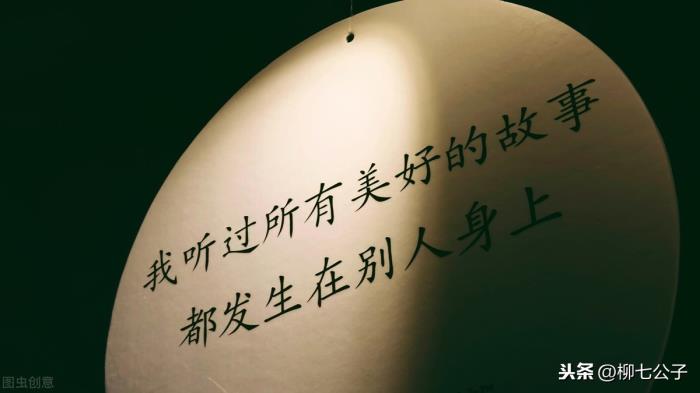 我听过所有美好的故事
都发生在别人身上
图虫创意
头条@柳七公子